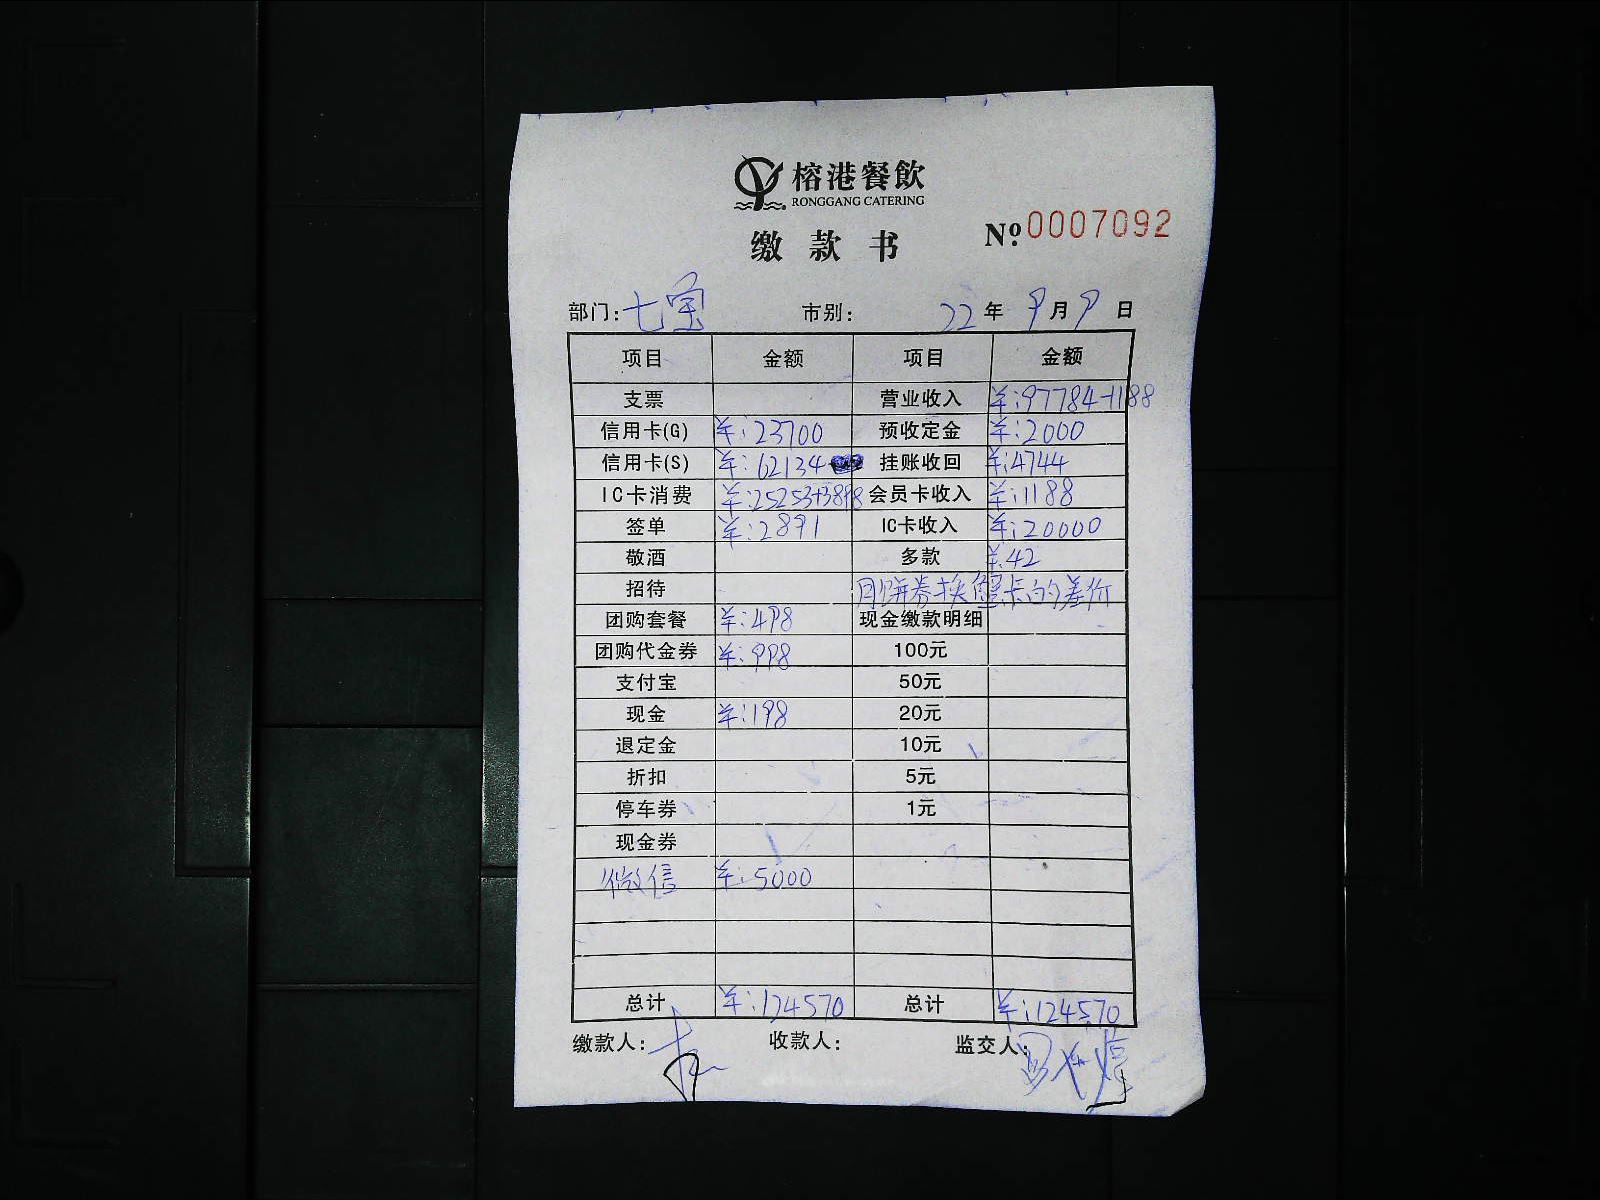 榕港餐飲
RONGGANG CATERING
缴款书 Nº 0007092
部门: 七宝 市别: 22年 9月 9日
项目 金额 项目 金额
支票 营业收入 ¥:97784-1188
信用卡(G) ¥:23700 预收定金 ¥:2000
信用卡(S) ¥:62134 挂账收回 ¥:4744
IC卡消费 ¥:25253+3898 会员卡收入 ¥:1188
签单 ¥:2891 IC卡收入 ¥:20000
敬酒 多款 ¥:42
招待 月饼券换蟹卡的差价
团购套餐 ¥:498 现金缴款明细
团购代金券 ¥:998 100元
支付宝 50元
现金 ¥:198 20元
退定金 10元
折扣 5元
停车券 1元
现金券
微信 ¥:5000
总计 ¥:124570 总计 ¥:124570
缴款人: 收款人: 监交人: